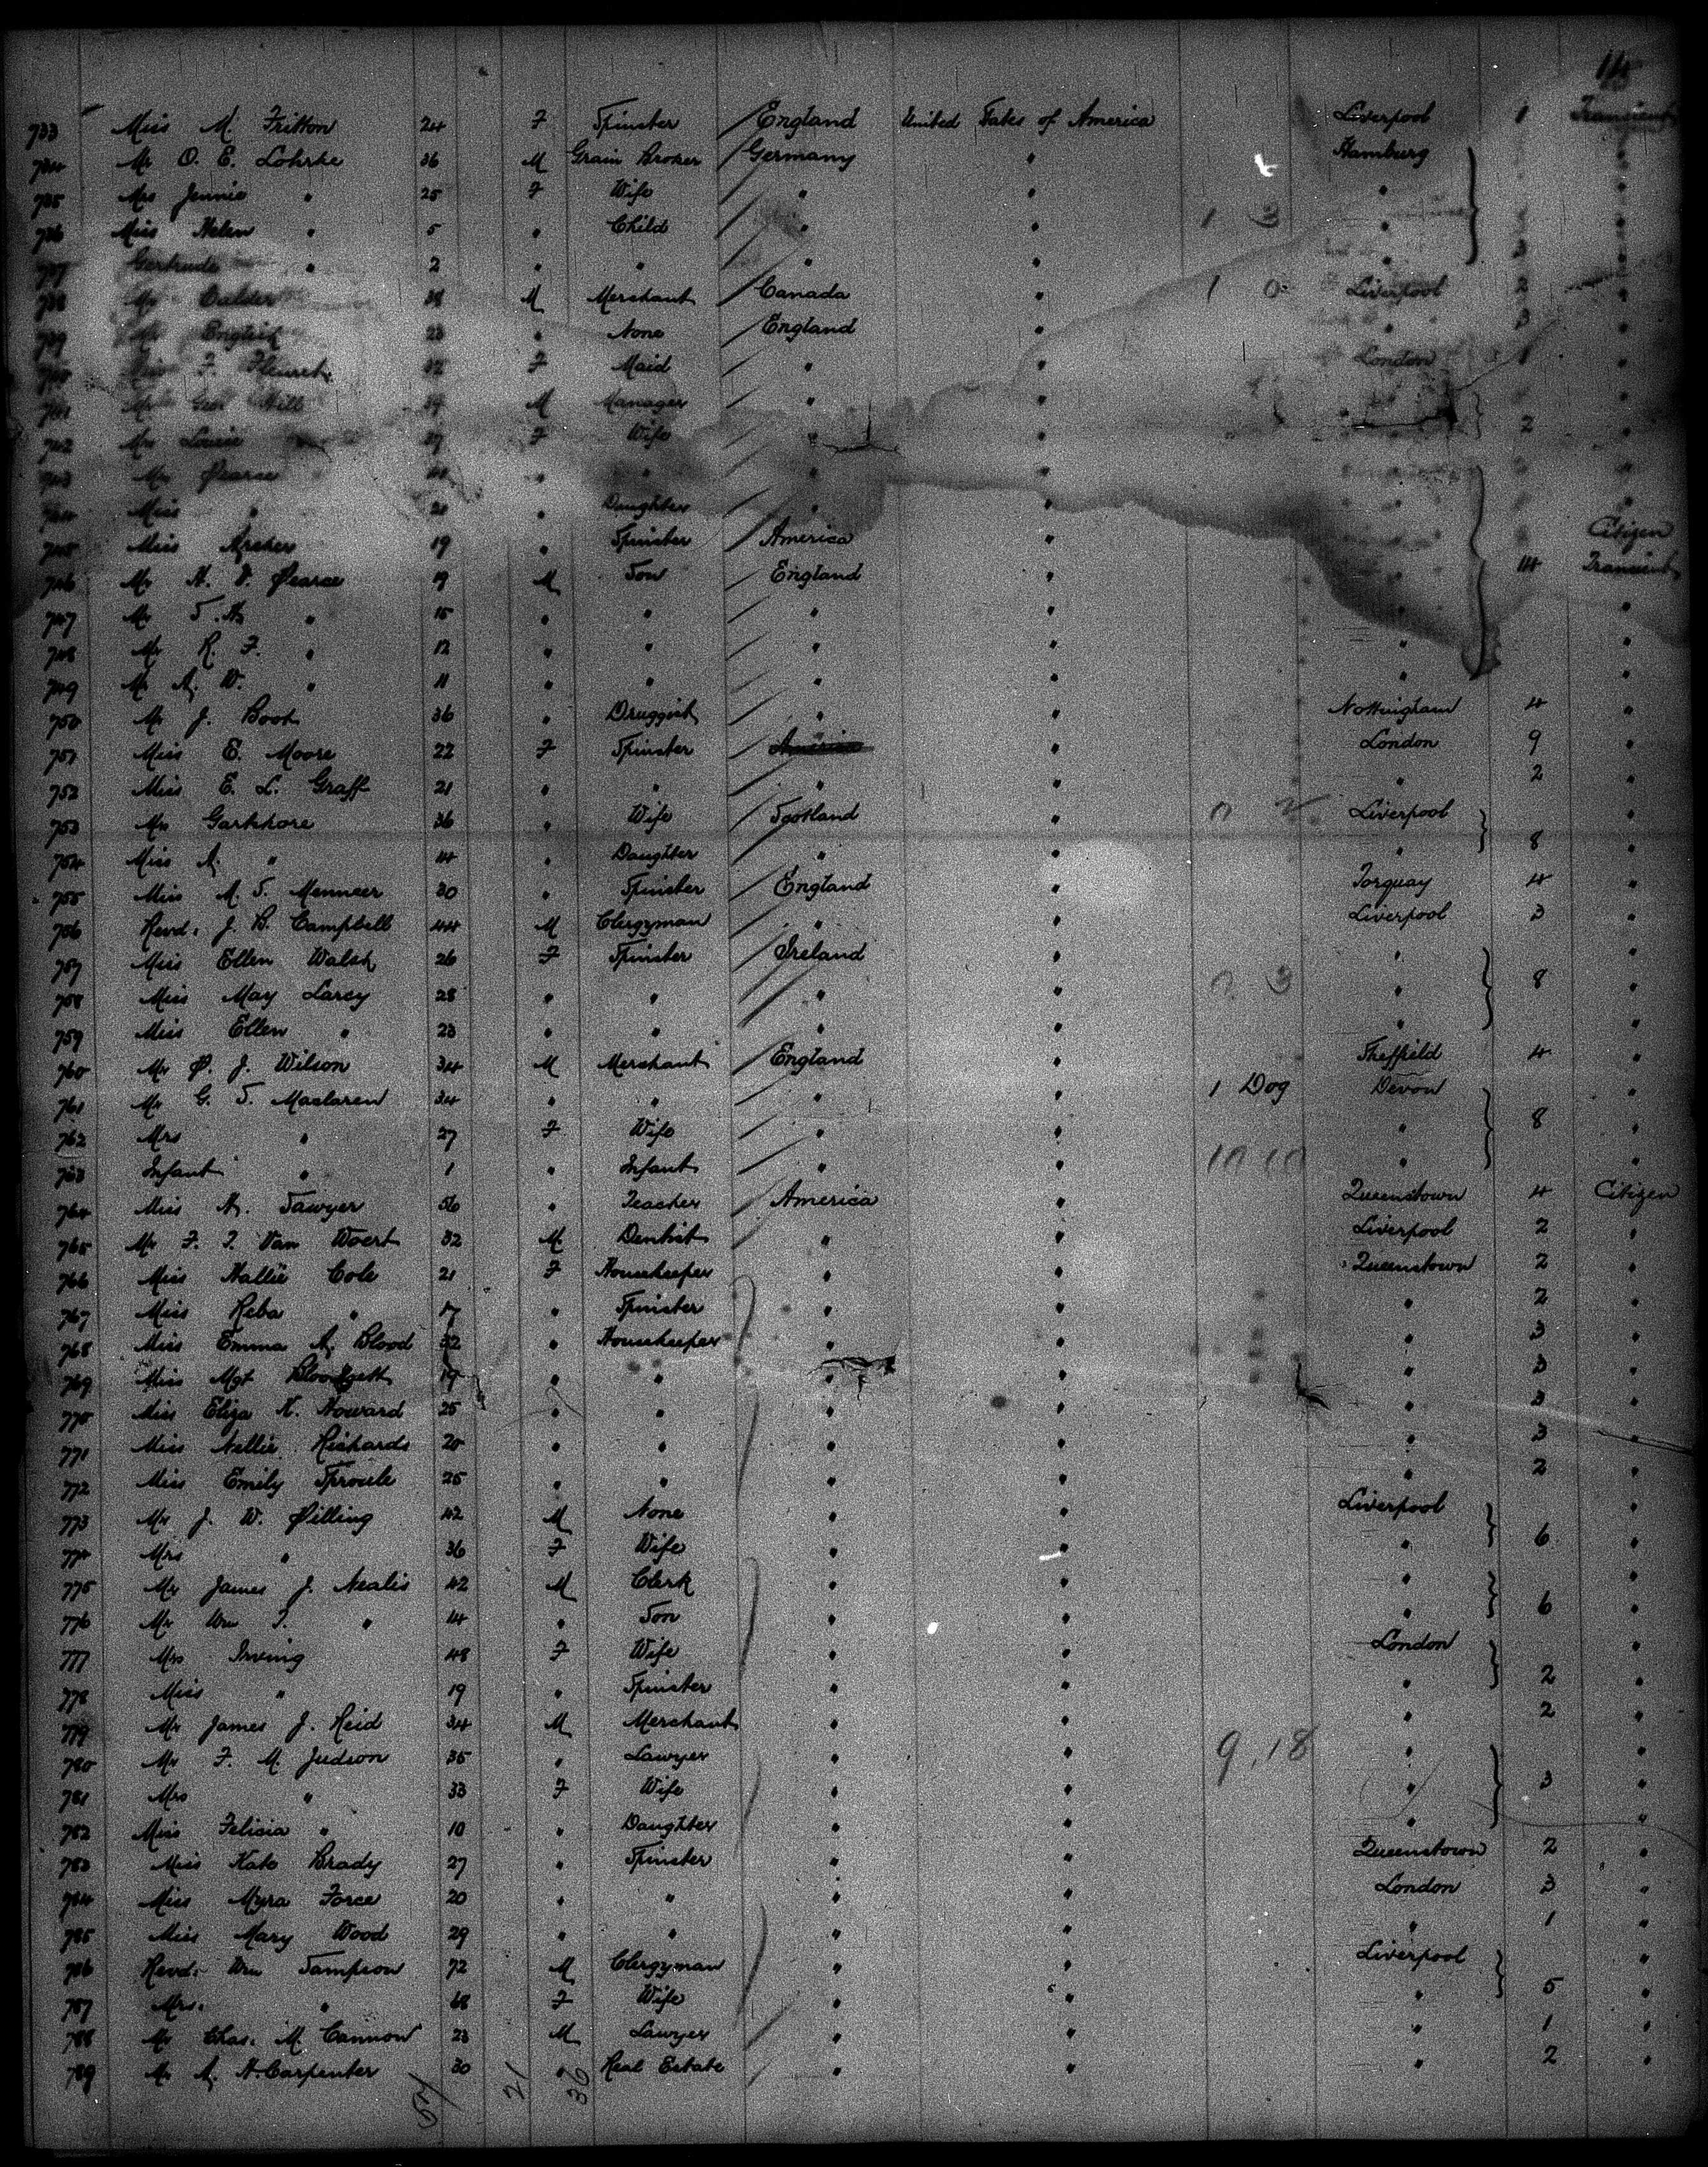 733 Miss M. Fritton 24 F Spinster England United States of America Liverpool 1 Transient
734 Mr O. E. Lohrke 36 M Grain Broker Germany " Hamburg "
735 Mrs Jennie " 25 F Wife " " " "
736 Miss Helen " 5 " Child " " 1 3 " "
737 Gertrude " 2 " " " " " 3 "
738 Mr Calder M Merchant Canada " 1 0 Liverpool 2 "
739 Mr 23 " None England " " 3 "
740 Miss F. 32 F Maid " " London 1 "
741 Mr Geo Hill 39 M Manager " " "
742 Mrs Louise " 27 F Wife " " 2 "
743 Mrs Pearce " " " " "
744 Miss " 21 " Daughter " " "
745 Miss Archer 19 " Spinster America " Citizen
746 Mr H. V. Pearce 19 M Son England " 14 Transient
747 Mr S. H. " 15 " " " " " "
748 Mr R. F. " 12 " " " " " "
749 Mr A. W. " 11 " " " " " "
750 Mr J. Boot 36 " Druggist " " Nottingham 4 "
751 Miss E. Moore 22 F Spinster America " London 9 "
752 Miss E. L. Graff 21 " " " " " 2 "
753 Mrs 36 " Wife Scotland " 0 2 Liverpool "
754 Miss A. " 14 " Daughter " " " 8 "
755 Miss M. S. Menneer 30 " Spinster England " Torquay 4 "
756 Revd. J. B. Campbell 44 M Clergyman " " Liverpool 3 "
757 Miss Ellen Walsh 26 F Spinster Ireland " " "
758 Miss May Larcy 28 " " " " 0 3 " 8 "
759 Miss Ellen " 23 " " " " " "
760 Mr P. J. Wilson 34 M Merchant England " Sheffield 4 "
761 Mr G. S. Maclaren 34 " " " " 1 Dog Devon "
762 Mrs " 27 F Wife " " " 8 "
763 Infant " 1 " Infant " " 10 10 " "
764 Miss H. Sawyer 56 " Teacher America " Queenstown 4 Citizen
765 Mr F. T. Van Woert 32 M Dentist " " Liverpool 2 "
766 Miss Hallie Cole 21 F Housekeeper " " Queenstown 2 "
767 Miss Reba " 17 " Spinster " " " 2 "
768 Miss Emma A. Blood 32 " Housekeeper " " " 3 "
769 Miss Mgt Bloodgett 19 " " " " " 3 "
770 Miss Eliza K. Howard 25 " " " " " 3 "
771 Miss Nellie Richards 20 " " " " " 3 "
772 Miss Emily Sproule 25 " " " " " 2 "
773 Mr J. W. Pilling 42 M None " " Liverpool "
774 Mrs " 36 F Wife " " " 6 "
775 Mr James J. Nealis 42 M Clerk " " " "
776 Mr Wm T. " 14 " Son " " " 6 "
777 Mrs Irving 48 F Wife " " London "
778 Miss " 19 " Spinster " " " 2 "
779 Mr James J. Reid 34 M Merchant " " " 2 "
780 Mr F. M. Judson 35 " Lawyer " " 9. 18 " "
781 Mrs " 33 F Wife " " " 3 "
782 Miss Felicia " 10 " Daughter " " " "
783 Miss Kate Brady 27 " Spinster " " Queenstown 2 "
784 Miss Myra Force 20 " " " " London 3 "
785 Miss Mary Wood 29 " " " " " 1 "
786 Revd. Wm Sampson 72 M Clergyman " " Liverpool "
787 Mrs. " 68 F Wife " " " 5 "
788 Mr Chas. M. Cannon 23 M Lawyer " " " 1 "
789 Mr A. H. Carpenter 30 " Real Estate " " " 2 "
57 21 36